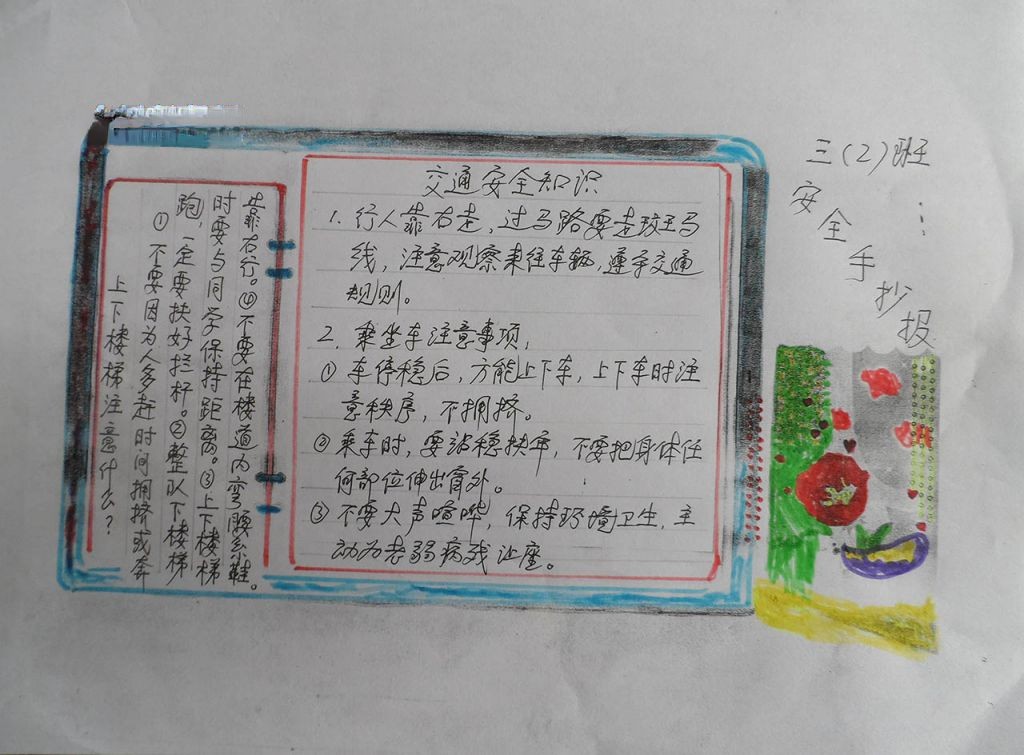 三(2)班
安全手抄报
交通安全知识
1. 行人靠右走,过马路要走斑马
线,注意观察来往车辆,遵守交通
规则。
2. 乘坐车注意事项,
① 车停稳后,方能上下车,上下车时注
意秩序,不拥挤。
② 乘车时,要站稳扶牢,不要把身体任
何部位伸出窗外。
③ 不要大声喧哗,保持环境卫生,主
动为老弱病残让座。
上下楼梯注意什么?
① 不要因为人多赶时间拥挤或奔
跑,一定要扶好拦杆。②整队下楼梯
时要与同学保持距离。③上下楼梯
靠右行。④不要在楼道内弯腰系鞋。